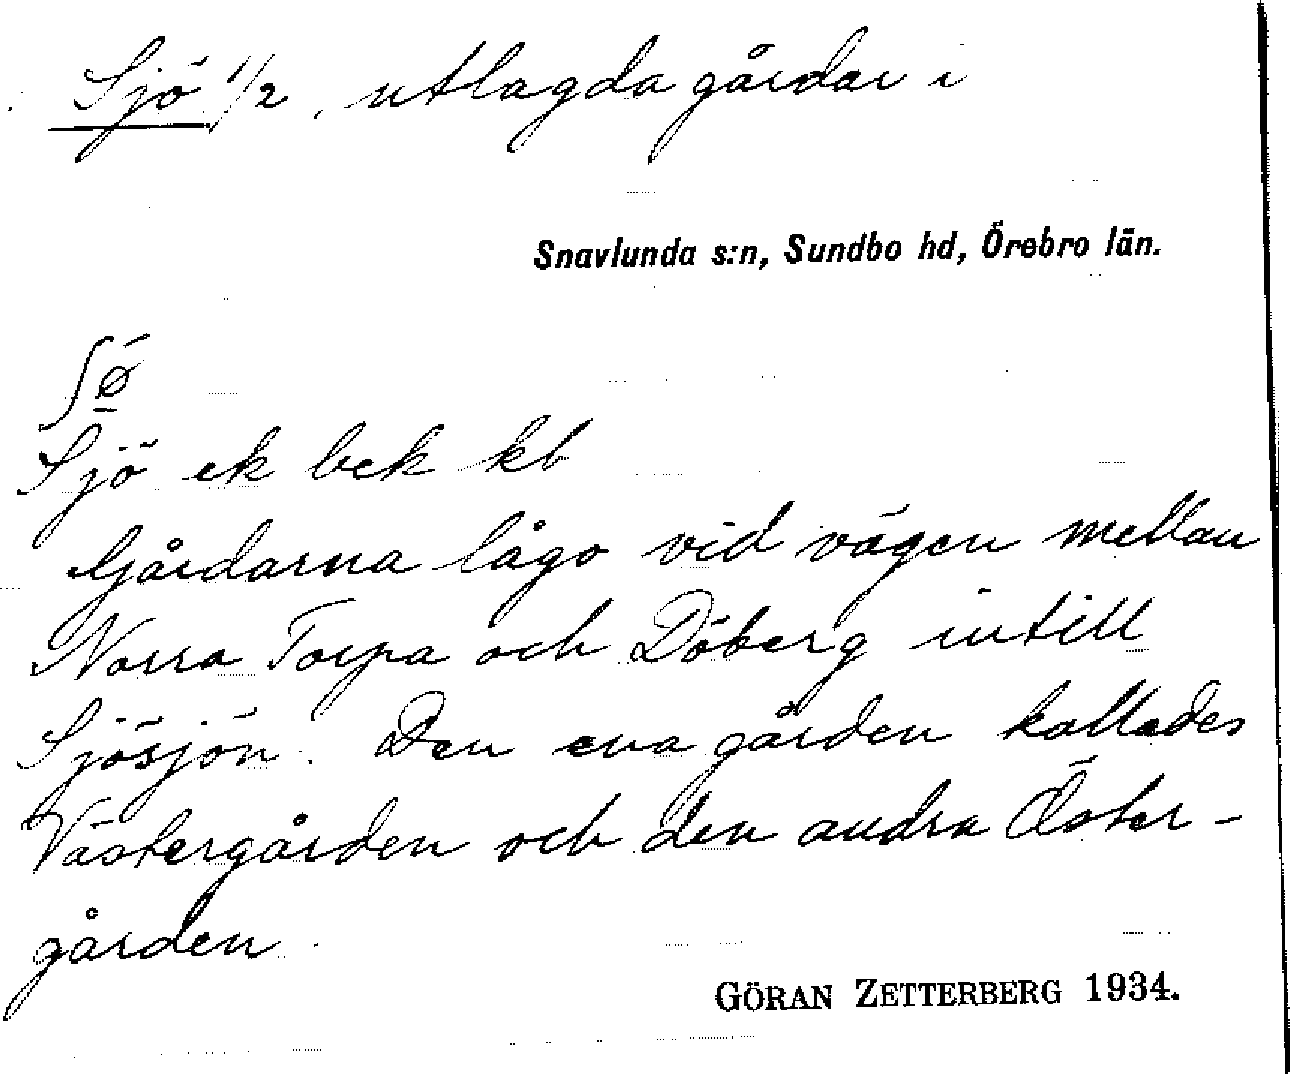 Sjö 1/2, utlagda gårdar i
Snavlunda s:n, Sundbo hd, Örebro län.
ʃǿ̱
Sjö ek bek kb
Gårdarna lågo vid vägen mellan
Norra Torpa och Döberg intill
Sjösjön. Den ena gården kallades
Västergården och den andra Öster-
gården.
GÖRAN ZETTERBERG 1934.